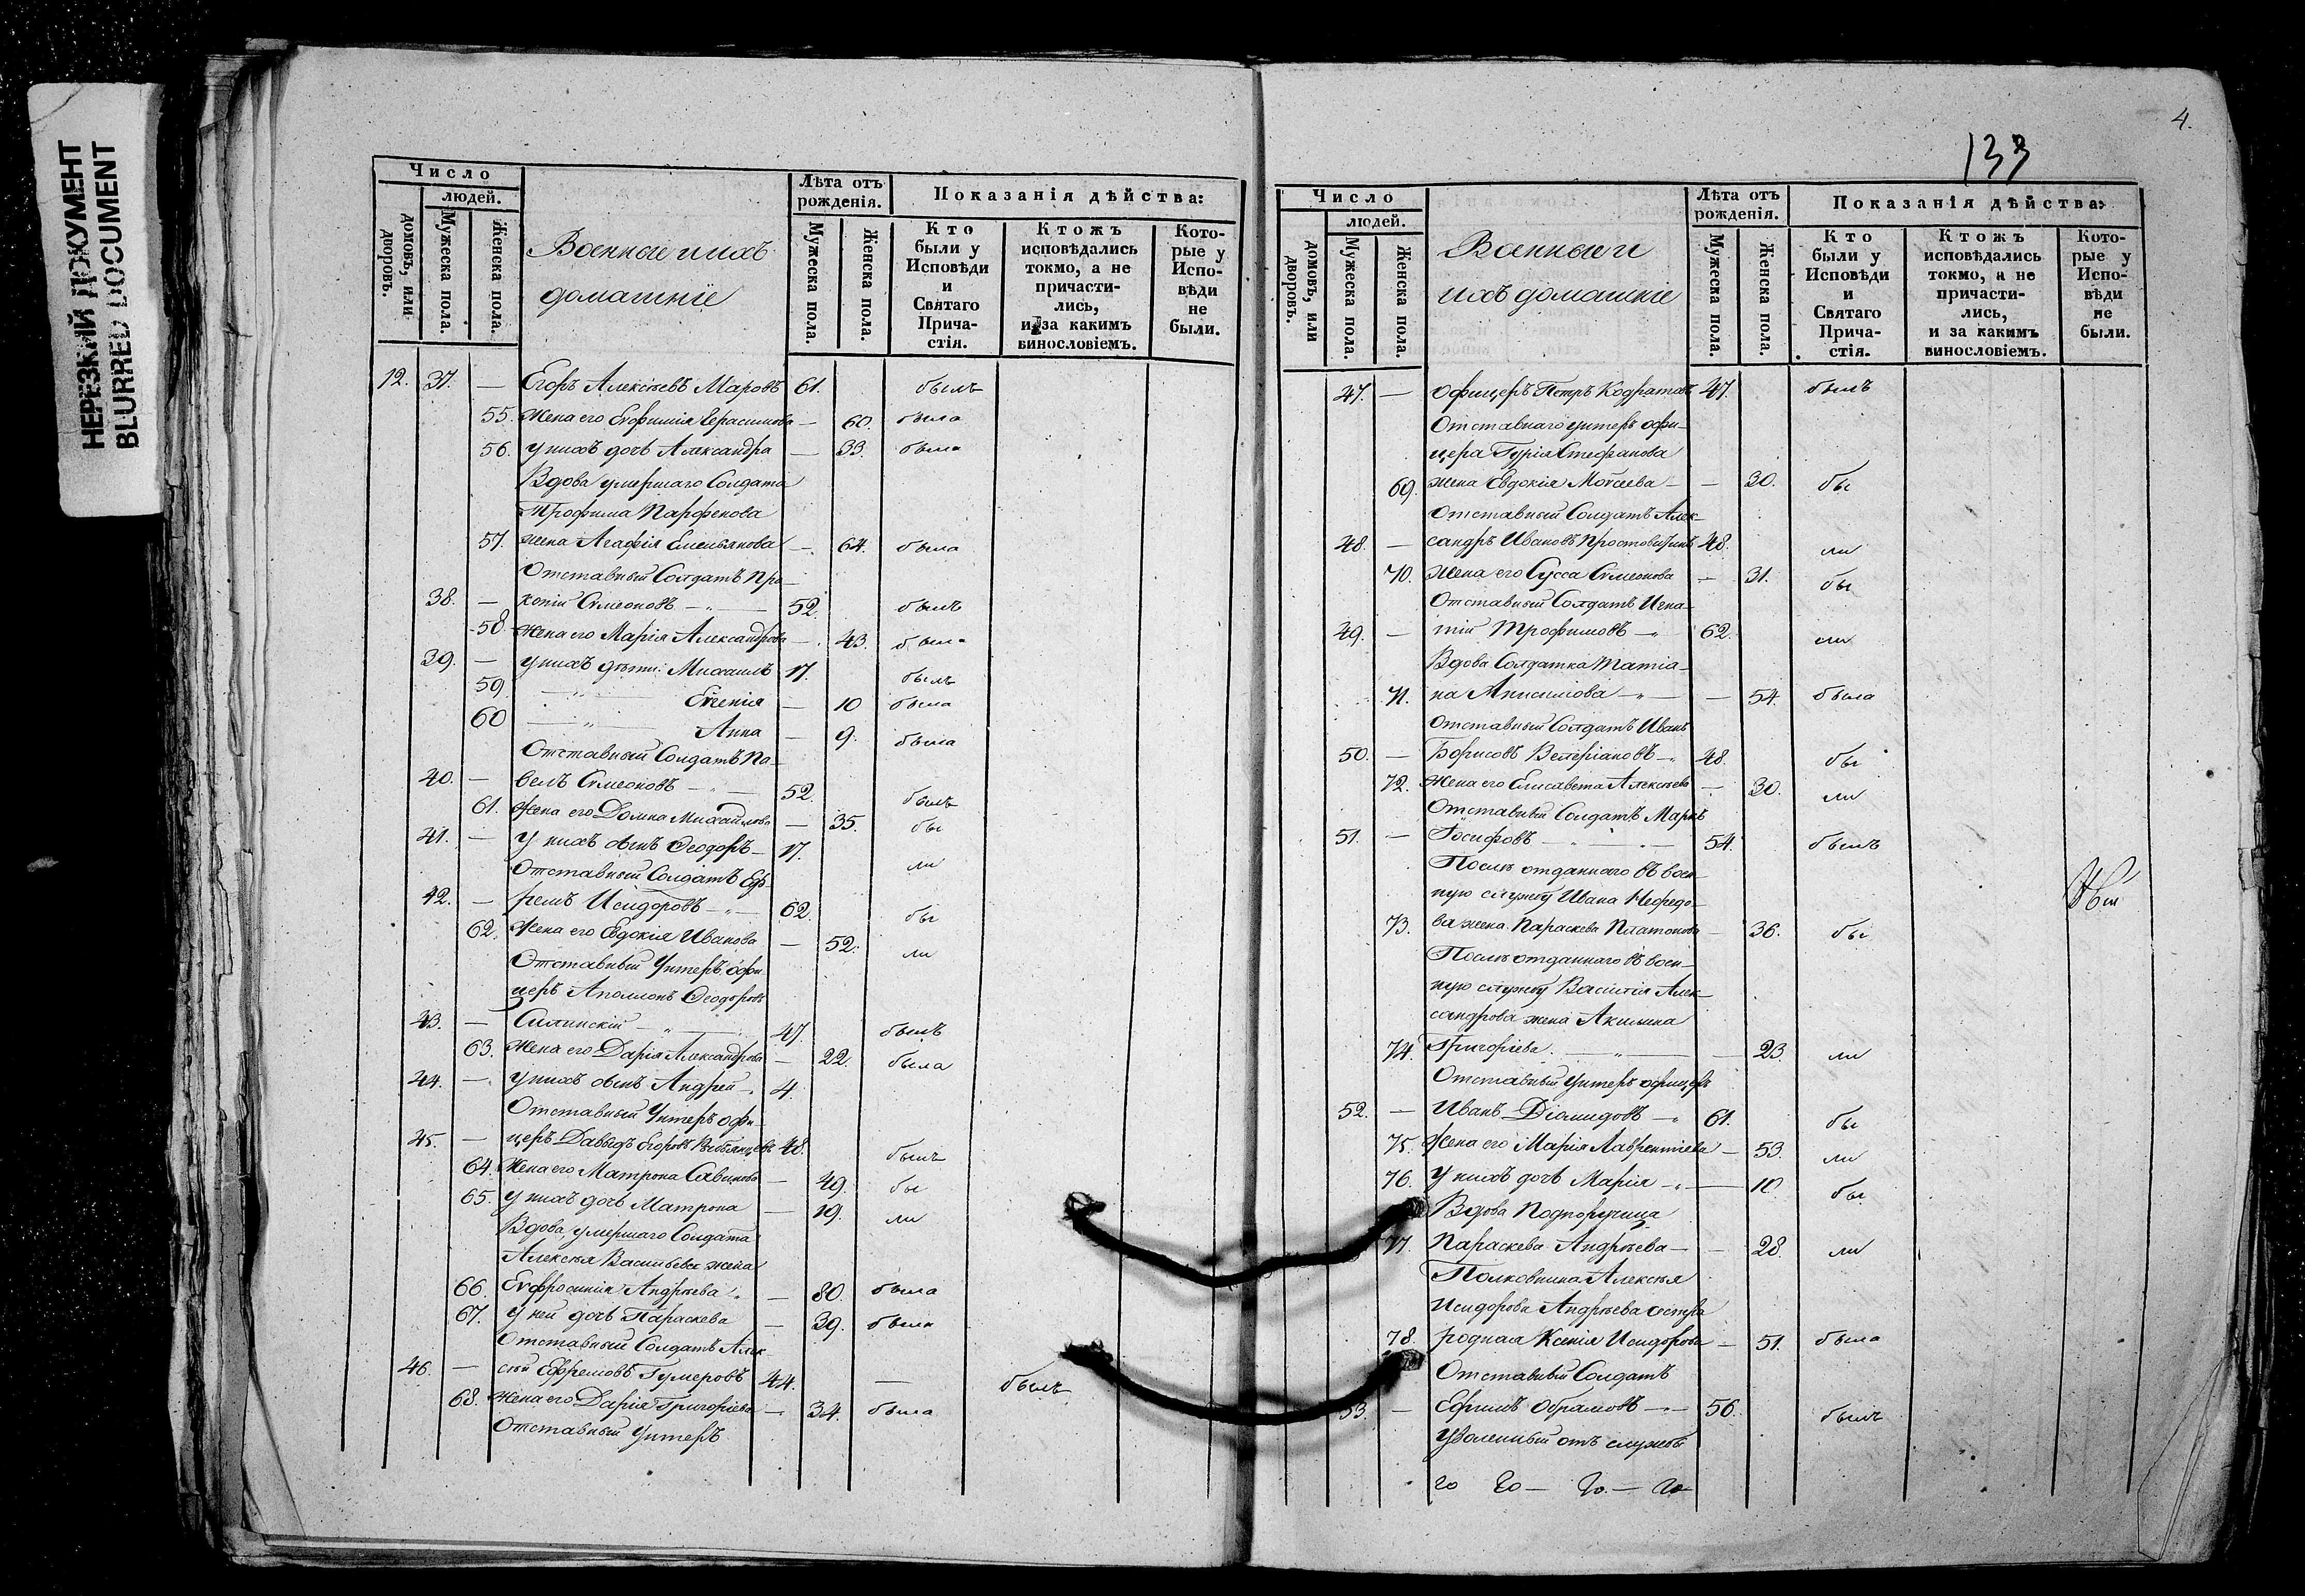 НЕРЕЗКИЙ ДОКУМЕНТ
BLURRED DOCUMENT
Число
людей.
домовъ, или дворовъ.
Мужеска пола.
Женска пола.
Военные и ихъ
домашніе
Лѣта отъ рожденія.
Мужеска пола.
Женска пола.
Показанія дѣйства:
Кто были у Исповѣди и Святаго Причастія.
Ктожъ исповѣдались токмо, а не причастились, и за какимъ винословіемъ.
Которые у Исповѣди не были.
12. 37. — Егоръ Алексѣевъ Маровъ 61. былъ
55. Жена его Евфимія Герасимова — 60. была
56. У нихъ дочь Александра — 33. была
Вдова умершаго Солдата
Трофима Парфенова
57. жена Агафія Емельянова — 64. была
Отставный Солдатъ Про-
38. — копій Симеоновъ — 52. былъ
58. Жена его Марія Александрова — 43. была
39. — У нихъ дѣти: Михаилъ 17. былъ
59. — " — Евгенія — 10 была
60 — " — Анна — 9. была
Отставный Солдатъ Па-
40. — велъ Симеоновъ — 52. былъ
61. Жена его Домна Михайлова — 35. бы
41. — У нихъ сынъ Ѳеодоръ — 17. ли
Отставный Солдатъ Еф-
42. — ремъ Исидоровъ — " — 62. бы
62. Жена его Евдокія Иванова — 52. ли
Отставный Унтеръ офи-
церъ Аполлонъ Ѳеодоровъ
43. — Силинскій — " — 47. былъ
63. Жена его Дарія Александрова — 22. была
44. — У нихъ сынъ Андрей — 4.
Отставный Унтеръ офи-
45. — церъ Давыдъ Егоровъ 48. былъ
64. Жена его Матрона Савинова — 49. бы
65. У нихъ дочь Матрона — 19. ли
Вдова, умершаго Солдата
Алексѣя Васильева жена
66. Евфросинія Андрѣева — 80. была
67. У ней дочь Параскева — 39. была
Отставный Солдатъ Алек-
46. — сѣй Ефремовъ Гумеровъ 44. — былъ
68. Жена его Дарія Григорьева — 34. была
Отставный Унтеръ
4.
133
Число
людей.
домовъ, или дворовъ.
Мужеска пола.
Женска пола.
Военные и
ихъ домашніе
Лѣта отъ рожденія.
Мужеска пола.
Женска пола.
Показанія дѣйства:
Кто были у Исповѣди и Святаго Причастія.
Ктожъ исповѣдались токмо, а не причастились, и за какимъ винословіемъ.
Которые у Исповѣди не были.
47. — офицеръ Петръ Кодратовъ 47. былъ
Отставнаго унтеръ офи-
цера Гурія Стефанова
69. жена Евдокія Моѵсеева — 30. бы
Отставный Солдатъ Алек-
48. — сандръ Ивановъ 48. ли
70. Жена его Сусса Симеонова — 31. бы
Отставный Солдатъ Игна-
49. — тій Трофимовъ — 62. ли
Вдова Солдатка Татіа-
71. на Анисимова — " — 54. была
Отставный Солдатъ Иванъ
50. — Борисовъ Велеріановъ — 48. бы
72. Жена его Елисавета Алексѣева — 30. ли
Отставный Солдатъ Маркъ
51. — Іосифовъ — 54. былъ
Послѣ отданнаго въ воен-
ную службу Ивана Нефедо-
73. ва жена Параскева Платонова — 36. бы
Послѣ отданнаго въ воен-
ную службу Василія Алек-
сандрова жена Акилина
74. Григоріева. — " — 23. ли
Отставный Унтеръ офицеръ
52. — Иванъ Діомидовъ — " 61. бы
75. Жена его Марія Лаврентіева — 53. ли
76. У нихъ дочь Марія — " — 10. бы
Вдова Подпоручица
77. Параскева Андрѣева — 28. ли
Полковника Алексѣя
Исидорова Андрѣева сестра
78. родная Ксенія Исидорова — 51. была
Отставный Солдатъ
53. — Ефимъ Обрамовъ — " 56. былъ
Уволенный отъ службы